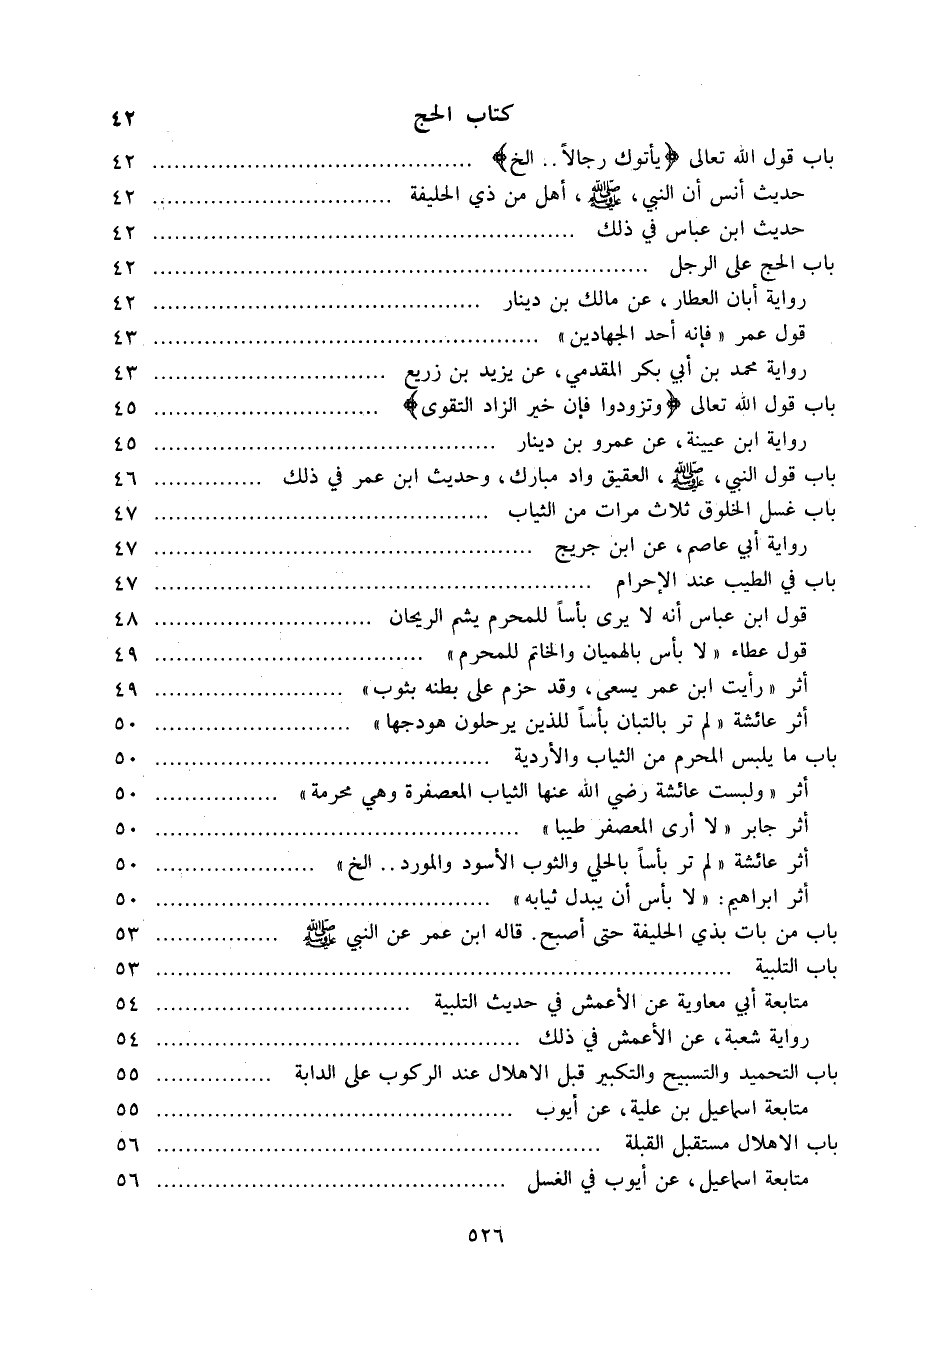 كتاب الحج ٤٢
باب قول الله تعالى ﴿يأتوك رجالاً.. الخ﴾ ........ ٤٢
حديث أنس أن النبي، ﷺ، أهل من ذي الحليفة ........ ٤٢
حديث ابن عباس في ذلك ........ ٤٢
باب الحج على الرجل ........ ٤٢
رواية أبان العطار، عن مالك بن دينار ........ ٤٢
قول عمر « فإنه أحد الجهادين » ........ ٤٣
رواية محمد بن أبي بكر المقدمي، عن يزيد بن زريع ........ ٤٣
باب قول الله تعالى ﴿وتزودوا فإن خير الزاد التقوى﴾ ........ ٤٥
رواية ابن عيينة، عن عمرو بن دينار ........ ٤٥
باب قول النبي، ﷺ، العقيق واد مبارك، وحديث ابن عمر في ذلك ........ ٤٦
باب غسل الخلوق ثلاث مرات من الثياب ........ ٤٧
رواية أبي عاصم، عن ابن جريج ........ ٤٧
باب في الطيب عند الإحرام ........ ٤٧
قول ابن عباس أنه لا يرى بأساً للمحرم يشم الريحان ........ ٤٨
قول عطاء « لا بأس بالهميان والخاتم للمحرم » ........ ٤٩
أثر « رأيت ابن عمر يسعى، وقد حزم على بطنه بثوب » ........ ٤٩
أثر عائشة « لم تر بالتبان بأساً للذين يرحلون هودجها » ........ ٥٠
باب ما يلبس المحرم من الثياب والأردية ........ ٥٠
أثر « ولبست عائشة رضي الله عنها الثياب المعصفرة وهي محرمة » ........ ٥٠
أثر جابر « لا أرى المعصفر طيبا » ........ ٥٠
أثر عائشة « لم تر بأساً بالحلي والثوب الأسود والمورد.. الخ » ........ ٥٠
أثر ابراهيم: « لا بأس أن يبدل ثيابه » ........ ٥٠
باب من بات بذي الحليفة حتى أصبح. قاله ابن عمر عن النبي ﷺ ........ ٥٣
باب التلبية ........ ٥٣
متابعة أبي معاوية عن الأعمش في حديث التلبية ........ ٥٤
رواية شعبة، عن الأعمش في ذلك ........ ٥٤
باب التحميد والتسبيح والتكبير قبل الاهلال عند الركوب على الدابة ........ ٥٥
متابعة اسماعيل بن علية، عن أيوب ........ ٥٥
باب الاهلال مستقبل القبلة ........ ٥٦
متابعة اسماعيل، عن أيوب في الغسل ........ ٥٦
٥٢٦